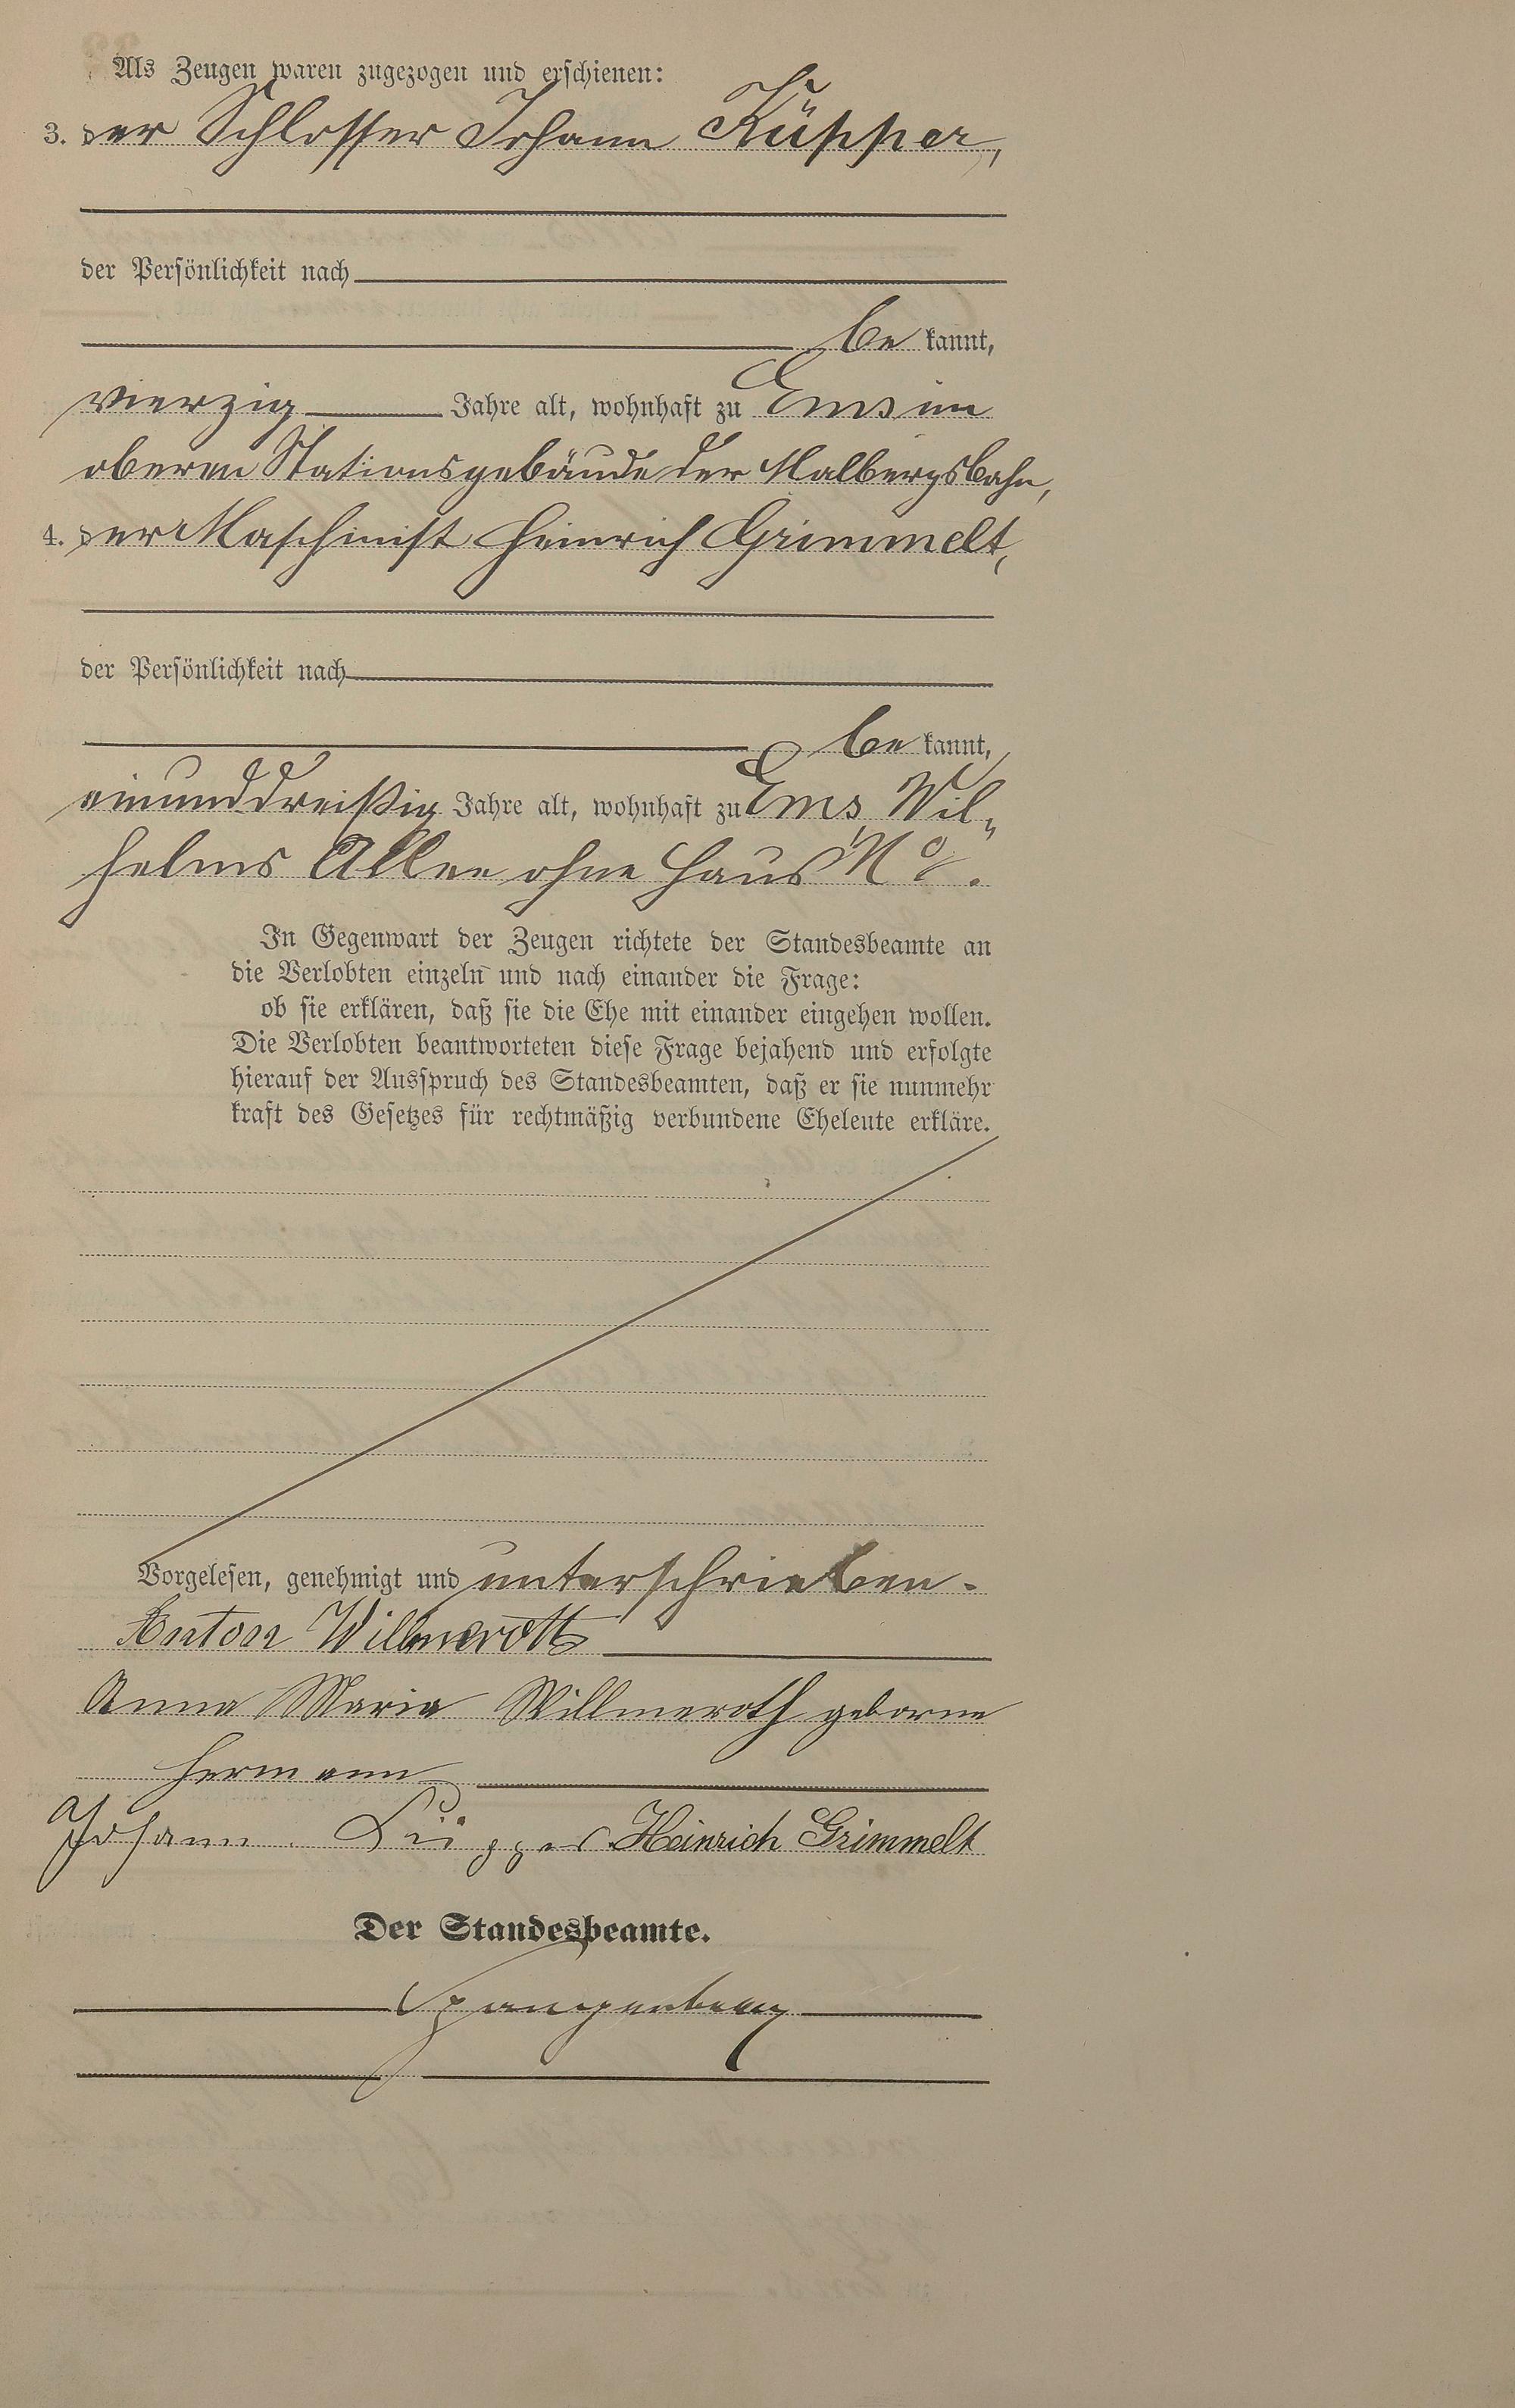 Als Zeugen waren zugezogen und erschienen:
3. der Schlosser Johann Küpper,
der Persönlichkeit nach
be kannt,
vierzig Jahre alt, wohnhaft zu Ems im
oberen Stationsgebäude der Malbergsbahn,
4. der Maschinist Heinrich Grimmelt,
der Persönlichkeit nach
be kannt,
einunddreißig Jahre alt, wohnhaft zu Ems Wil-
helms Allee ohne Haus No.
In Gegenwart der Zeugen richtete der Standesbeamte an
die Verlobten einzeln und nach einander die Frage:
ob sie erklären, daß sie die Ehe mit einander eingehen wollen.
Die Verlobten beantworteten diese Frage bejahend und erfolgte
hierauf der Ausspruch des Standesbeamten, daß er sie nunmehr
kraft des Gesetzes für rechtmäßig verbundene Eheleute erkläre.
Vorgelesen, genehmigt und unterschrieben.
Anton Willmeroth
Anna Maria Willmeroth geborne
Hermann
Johann Küpper Heinrich Grimmelt
Der Standesbeamte.
Spangenberg